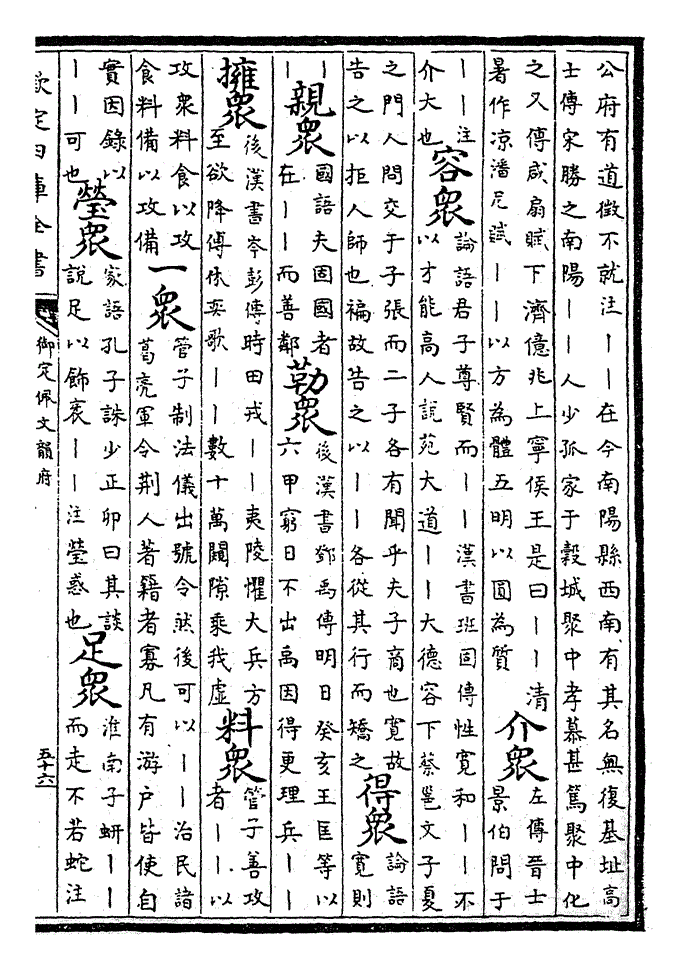 公府有道徵不就注丨丨在今南陽縣西南有其名無復基址高
士傳宋勝之南陽丨丨人少孤家于穀城聚中孝慕甚篤聚中化
之又傳咸扇賦下濟億兆上寧侯王是曰丨丨清
暑作凉潘尼賦丨丨以方為體五明以圓為質
介衆
左傳晉士
景伯問于
丨丨注
介大也
容衆
論語君子尊賢而丨丨漢書班固傳性寛和丨丨不
以才能高人說苑大道丨丨大德容下蔡邕文子夏
之門人問交于子張而二子各有聞乎夫子商也寛故
告之以拒人師也褊故告之以丨丨各從其行而矯之
得衆
論語
寛則
丨
丨
親衆
國語夫固國者
在丨丨而善鄰
勒衆
後漢書鄧禹傳明日癸亥王匡等以
六甲窮日不出禹因得更理兵丨丨
擁衆
後漢書岑彭傳時田戎丨丨夷陵懼大兵方
至欲降傅休奕歌丨丨數十萬闞隙乘我虚
料衆
管子善攻
者丨丨以
攻衆料食以攻
食料備以攻備
一衆
管子制法儀出號令然後可以丨丨治民諸
葛亮軍令荆人著籍者寡凡有游户皆使自
實因錄以
丨丨可也
瑩衆
家語孔子誅少正卯曰其談
說足以飾裹丨丨注瑩惑也
足衆
淮南子蚈丨丨
而走不若蛇注
欽定四庫全書
御定佩文韻府
五十六